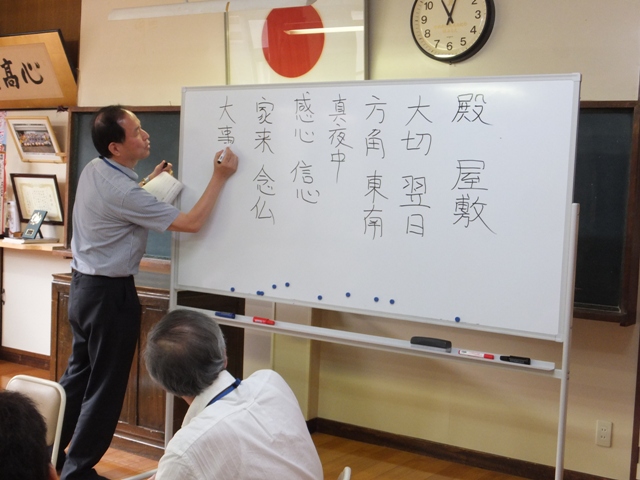 殿 屋敷
大切 翌日
方角 東南
真夜中
感心 信心
家来 念仏
大事
高心
10 11 12 1 2 3 4 5 6 7 8 9